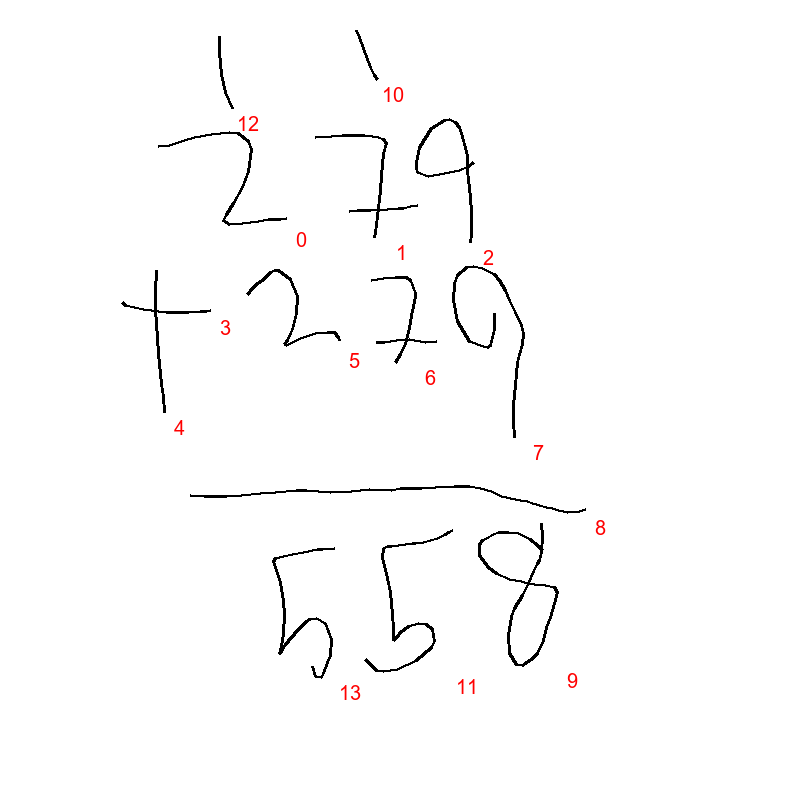 1 1
12 10
279
0 1 2
+ 279
3 5 6
4 7
8
558
13 11 9